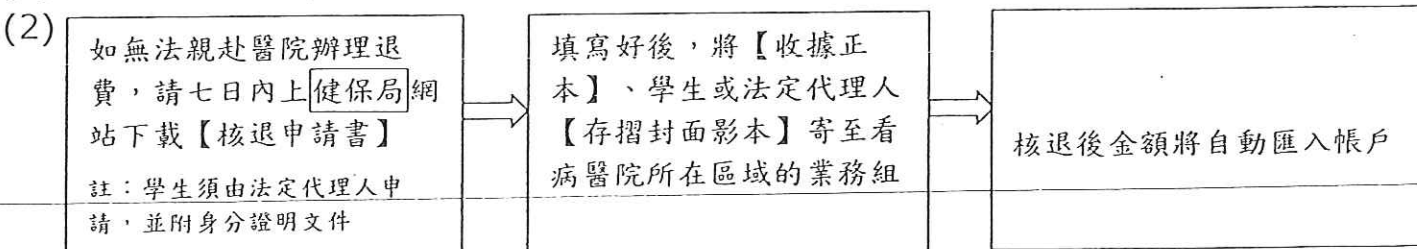 (2)
如無法親赴醫院辦理退
費，請七日內上健保局網
站下載【核退申請書】
註：學生須由法定代理人申
請，並附身分證明文件
填寫好後，將【收據正
本】、學生或法定代理人
【存摺封面影本】寄至看
病醫院所在區域的業務組
核退後金額將自動匯入帳戶